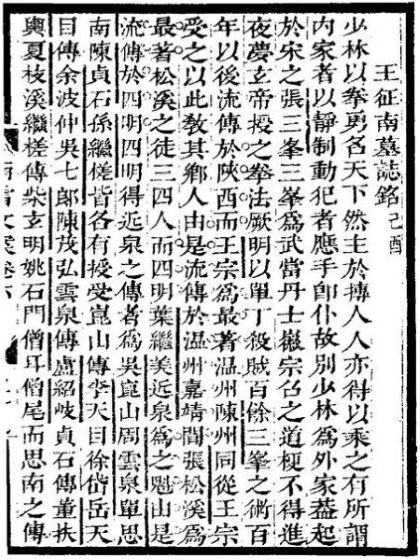 王征南墓誌銘己酉
少林以拳勇名天下然主於搏人人亦得以乘之有所謂
内家者以靜制動犯者應手即仆故別少林為外家蓋起
於宋之張三峯三峯為武當丹士徽宗召之道梗不得進
夜夢玄帝授之拳法厥明以單丁殺賊百餘三峯之術百
年以後流傳於陝西而王宗為最著温州陳州同從王宗
受之以此教其鄉人由是流傳於温州嘉靖間張松溪為
最著松溪之徒三四人而四明葉繼美近泉為之魁由是
流傳於四明四明得近泉之傳者為吳崑山周雲泉單思
南陳貞石孫繼槎皆各有授受崑山傳李天目徐岱岳天
目傳余波仲吳七郎陳茂弘雲泉傳盧紹岐貞石傳董扶
輿夏枝溪繼槎傳柴玄明姚石門僧耳僧尾而思南之傳
南雷文案卷六